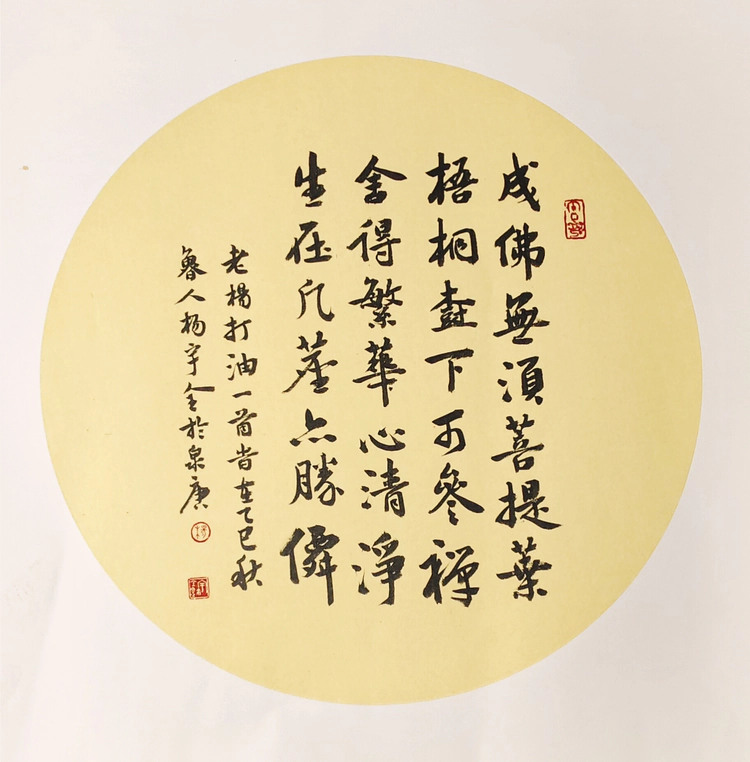 成佛無須菩提葉
梧桐臺下可參禪
舍得繁華心清淨
生在凡塵亦勝僊
老楊打油一首時在乙巳秋
魯人楊宇全於泉康